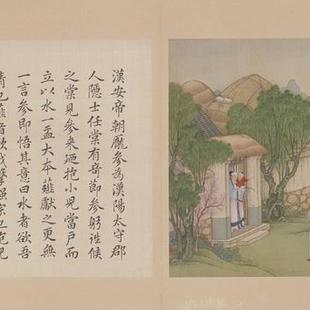 漢安帝朝龐參為漢陽太守郡
人隱士任棠有奇節參躬詣候
之棠見參來迺抱小兒當戶而
立以水一盂大本薤獻之更無
一言參即悟其意曰水者欲吾
清也薤者欲我擊強宗也抱兒